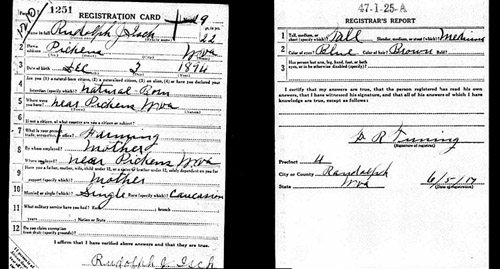 Form 1 1251 REGISTRATION CARD No. 29
1 Name in full Rudolph J Isch Age, in yrs. 22
2 Home address Pickens W va
3 Date of birth Dec 3 1894
4 Are you (1) a natural-born citizen, (2) a naturalized citizen, (3) an alien, (4) or have you declared your intention (specify which)? Natural-Born
5 Where were you born? near Pickens W va
6 If not a citizen, of what country are you a citizen or subject?
7 What is your present trade, occupation, or office? Farming
8 By whom employed? Mother
Where employed? near Pickens W va
9 Have you a father, mother, wife, child under 12, or a sister or brother under 12, solely dependent on you for support (specify which)? Mother
10 Married or single (which)? Single Race (specify which)? Caucasian
11 What military service have you had? Rank branch
years Nation or State
12 Do you claim exemption from draft (specify grounds)?
I affirm that I have verified above answers and that they are true.
Rudolph J. Isch
47-1-25-A
REGISTRAR'S REPORT
1 Tall, medium, or short (specify which)? Tall Slender, medium, or stout (which)? Medium
2 Color of eyes? Blue Color of hair? Brown Bald?
3 Has person lost arm, leg, hand, foot, or both eyes, or is he otherwise disabled (specify)?
I certify that my answers are true, that the person registered has read his own answers, that I have witnessed his signature, and that all of his answers of which I have knowledge are true, except as follows:
(Signature of registrar)
Precinct 4
City or County Randolph
State W va 6/5/17
(Date of registration)